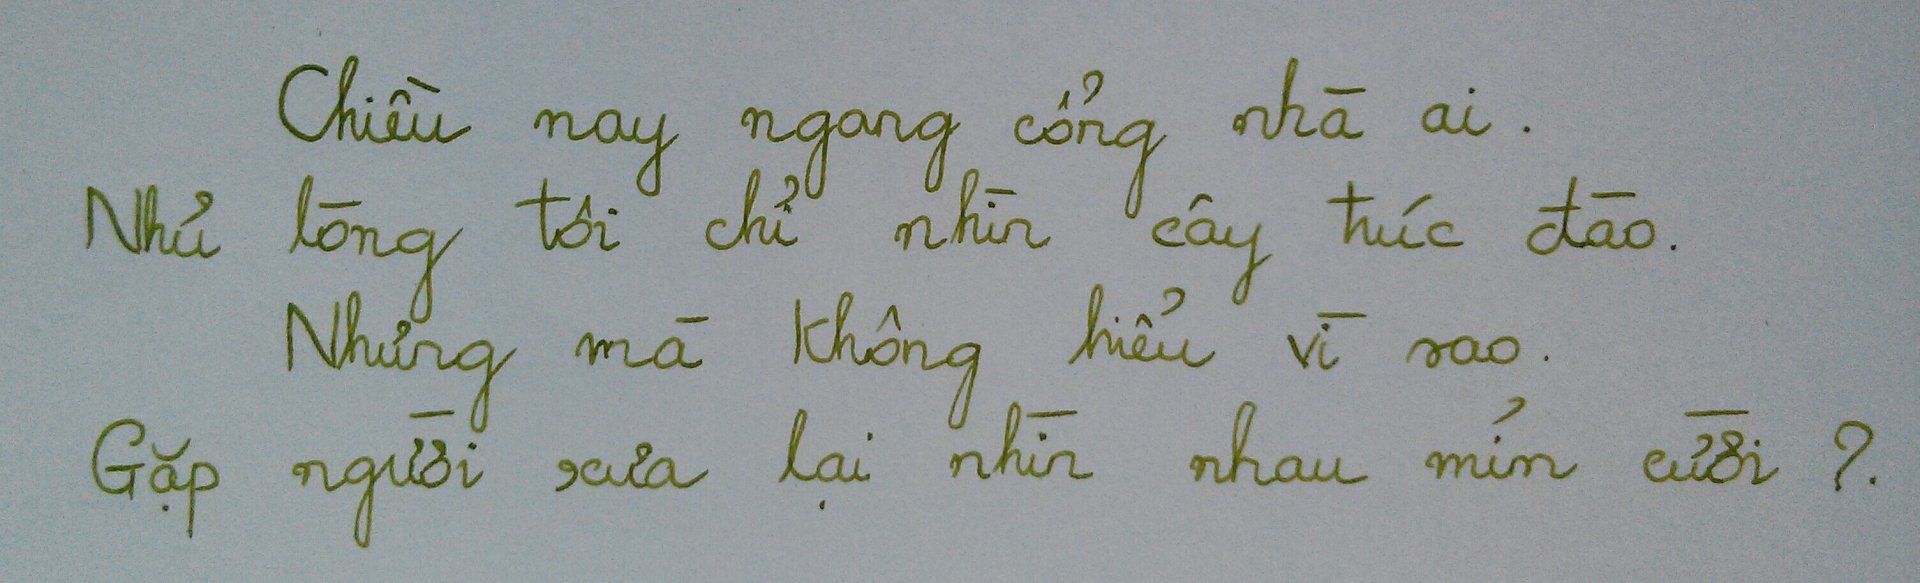 Chiều nay ngang cổng nhà ai.
Nhủ lòng tôi chỉ nhìn cây trúc đào.
Nhưng mà không hiểu vì sao.
Gặp người xưa lại nhìn nhau mỉn cười?.